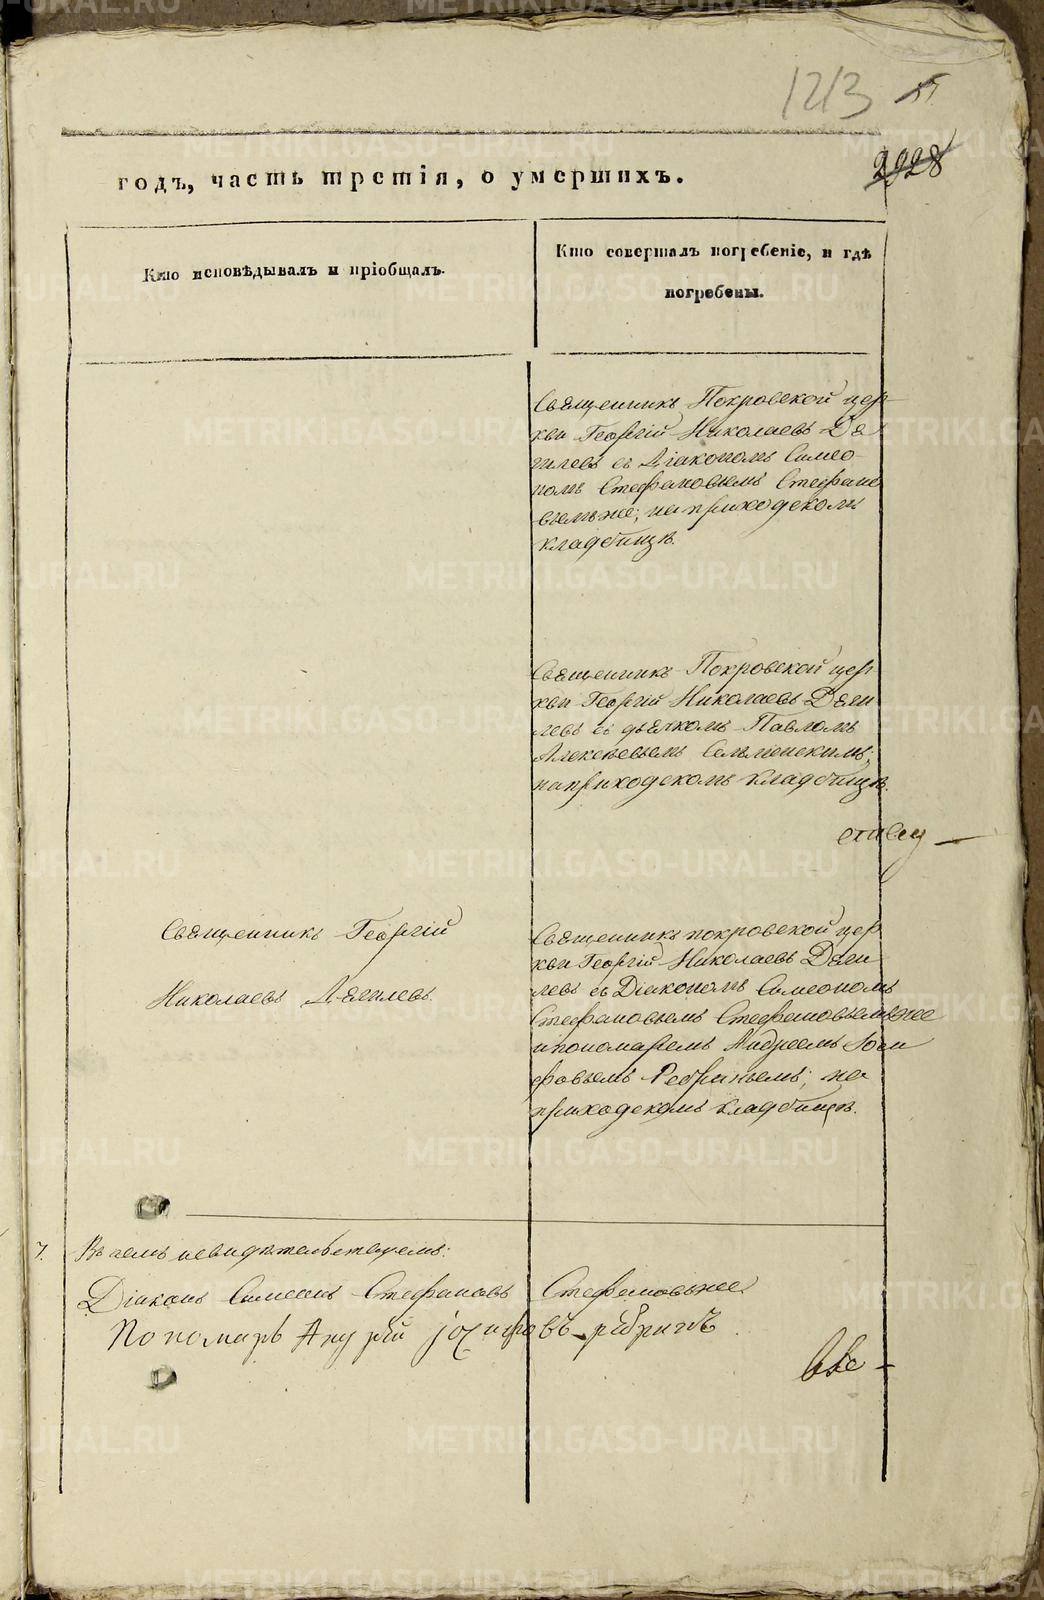 1213
2928
годъ, часть третія, о умершихъ.
Кто исповѣдывалъ и пріобщалъ.
Кто совершалъ погребеніе, и гдѣ
погребены.
Священникъ Покровской цер
кви Георгій Николаевъ Дя
гилевъ съ Діакономъ Симео-
номъ Стефановымъ Стефано
вымъ же; на приходском
кладбищѣ.
Священникъ Покровской цер
кви Георгій Николаевъ Дяги
левъ съ дьячкомъ Павломъ
Алексѣевымъ Сельменскимъ;
на приходскомъ кладбищѣ.
Священникъ Георгій
Николаевъ Дягилевъ.
Священникъ покровской цер
кви Георгій Николаевъ Дяги
левъ съ Діакономъ Симеономъ
Стефановымъ Стефановымъ же
и пономаремъ Андреемъ Іоси
фовымъ Ребринымъ; на
приходскомъ кладбищѣ.
Въ чемъ и свидѣтельствуемъ:
Діаконъ Симеонъ Стефановъ Стефановъ же
Пономарь Андрей Іосифовъ Ребринъ
METRIKI.GASO-URAL.RU